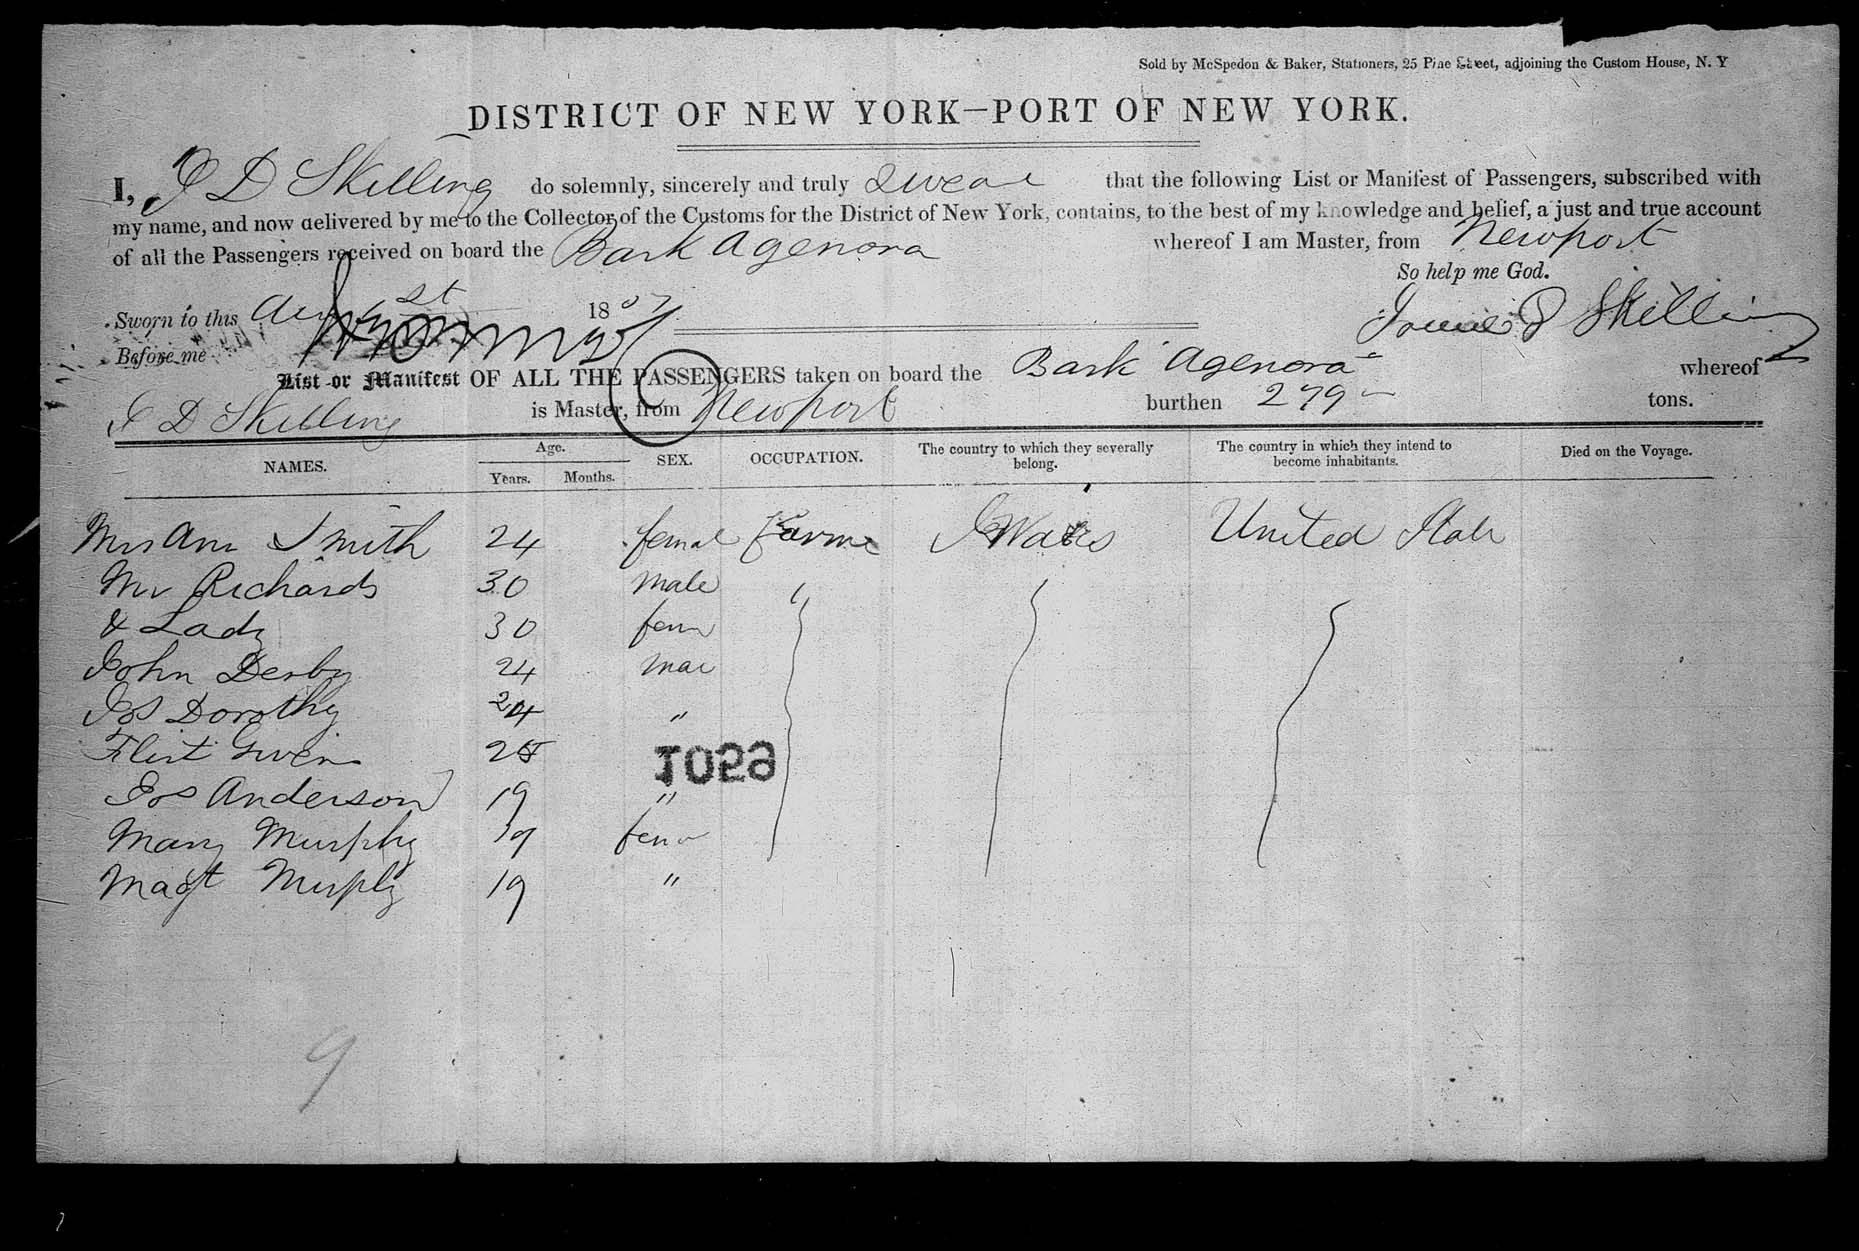 Sold by McSpedon & Baker, Stationers, 25 Pine Street, adjoining the Custom House, N. Y
DISTRICT OF NEW YORK—PORT OF NEW YORK.
I, J D Skilling do solemnly, sincerely and truly swear that the following List or Manifest of Passengers, subscribed with
my name, and now delivered by me to the Collector of the Customs for the District of New York, contains, to the best of my knowledge and belief, a just and true account
of all the Passengers received on board the Bark Agenora whereof I am Master, from Newport
So help me God.
Sworn to this 1857 D Skilling
Before me
List or Manifest OF ALL THE PASSENGERS taken on board the Bark Agenora whereof
J D Skilling is Master, from Newport burthen 279 tons.
NAMES. Age. Years. Months. SEX. OCCUPATION. The country to which they severally belong. The country in which they intend to become inhabitants. Died on the Voyage.
Mrs Ann Smith 24 femal Farme Wales United State
Mr Richards 30 male
& Lady 30 fem
John Derby 24 mae
Jos Dorothy 24 "
Flint 25
1059
Jos Anderson 19 "
Mary Murphy 19 fem
Magt Murphy 19 "
9